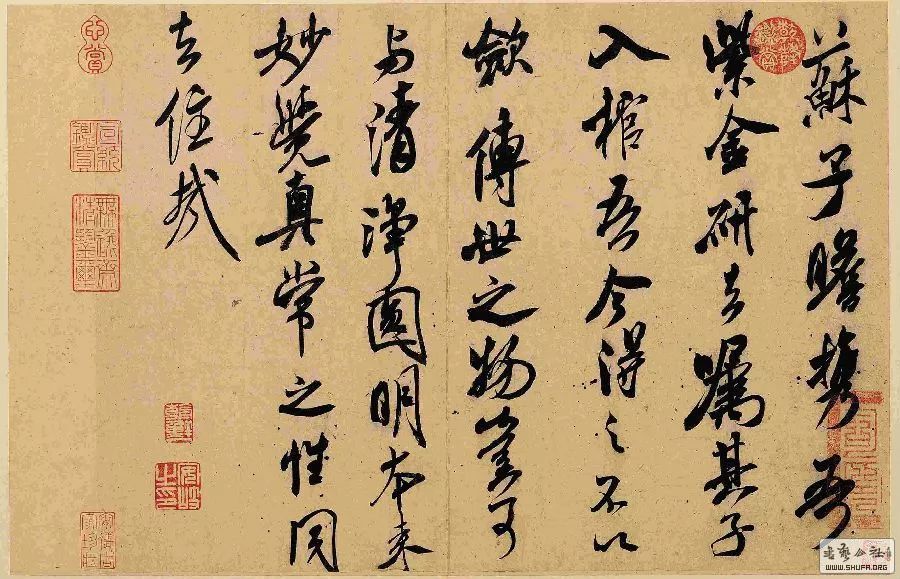 蘇子瞻携吾
紫金研去嘱其子
入棺吾今得之不以
斂傳世之物豈可
与清浄圓明本来
妙覺真常之性同
去住哉
心賞
安岐之印
书艺公社
WWW.SHUFA.ORG